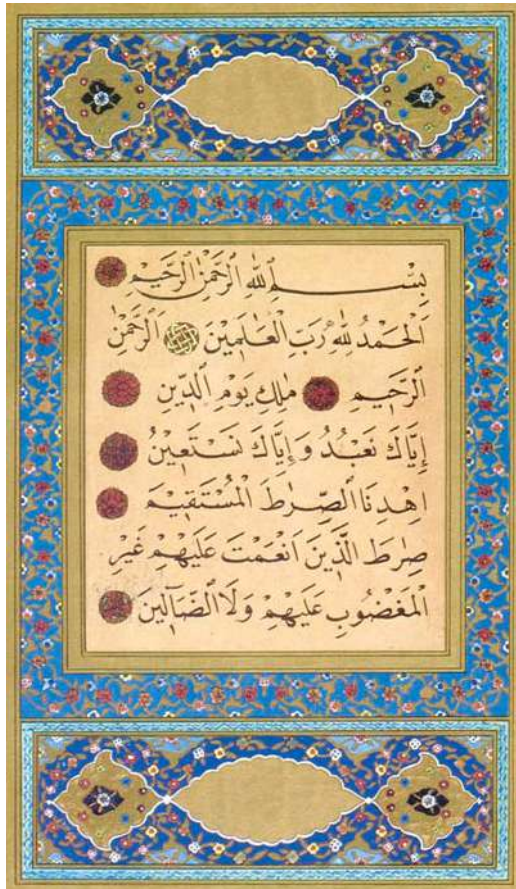 بِسْــــمِ اللّٰهِ الرَّحْمٰنِ الرَّحٖيمِ
اَلْحَمْدُ لِلّٰهِ رَبِّ الْعَالَمٖينَ اَلرَّحْمٰنِ
الرَّحٖيمِ مَالِكِ يَوْمِ الدّٖينِ
اِيَّاكَ نَعْبُدُ وَاِيَّاكَ نَسْتَعٖينُ
اِهْدِنَا الصِّرَاطَ الْمُسْتَقٖيمَ
صِرَاطَ الَّذٖينَ اَنْعَمْتَ عَلَيْهِمْ غَيْرِ
الْمَغْضُوبِ عَلَيْهِمْ وَلَا الضَّٓالّٖينَ